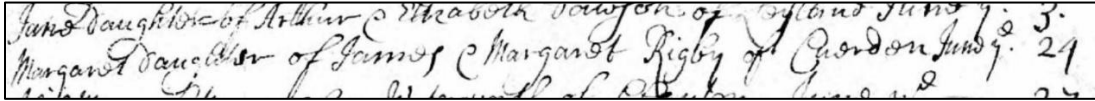 Jane Daughter of Arthur & Elizabeth Dawson of Leyland June ye. 3.
Margaret Daughter of James & Margaret Rigby of Cuerden June ye. 24
of June